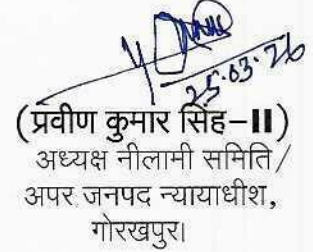 25.03.26
(प्रवीण कुमार सिंह–II)
अध्यक्ष नीलामी समिति/
अपर जनपद न्यायाधीश,
गोरखपुर।